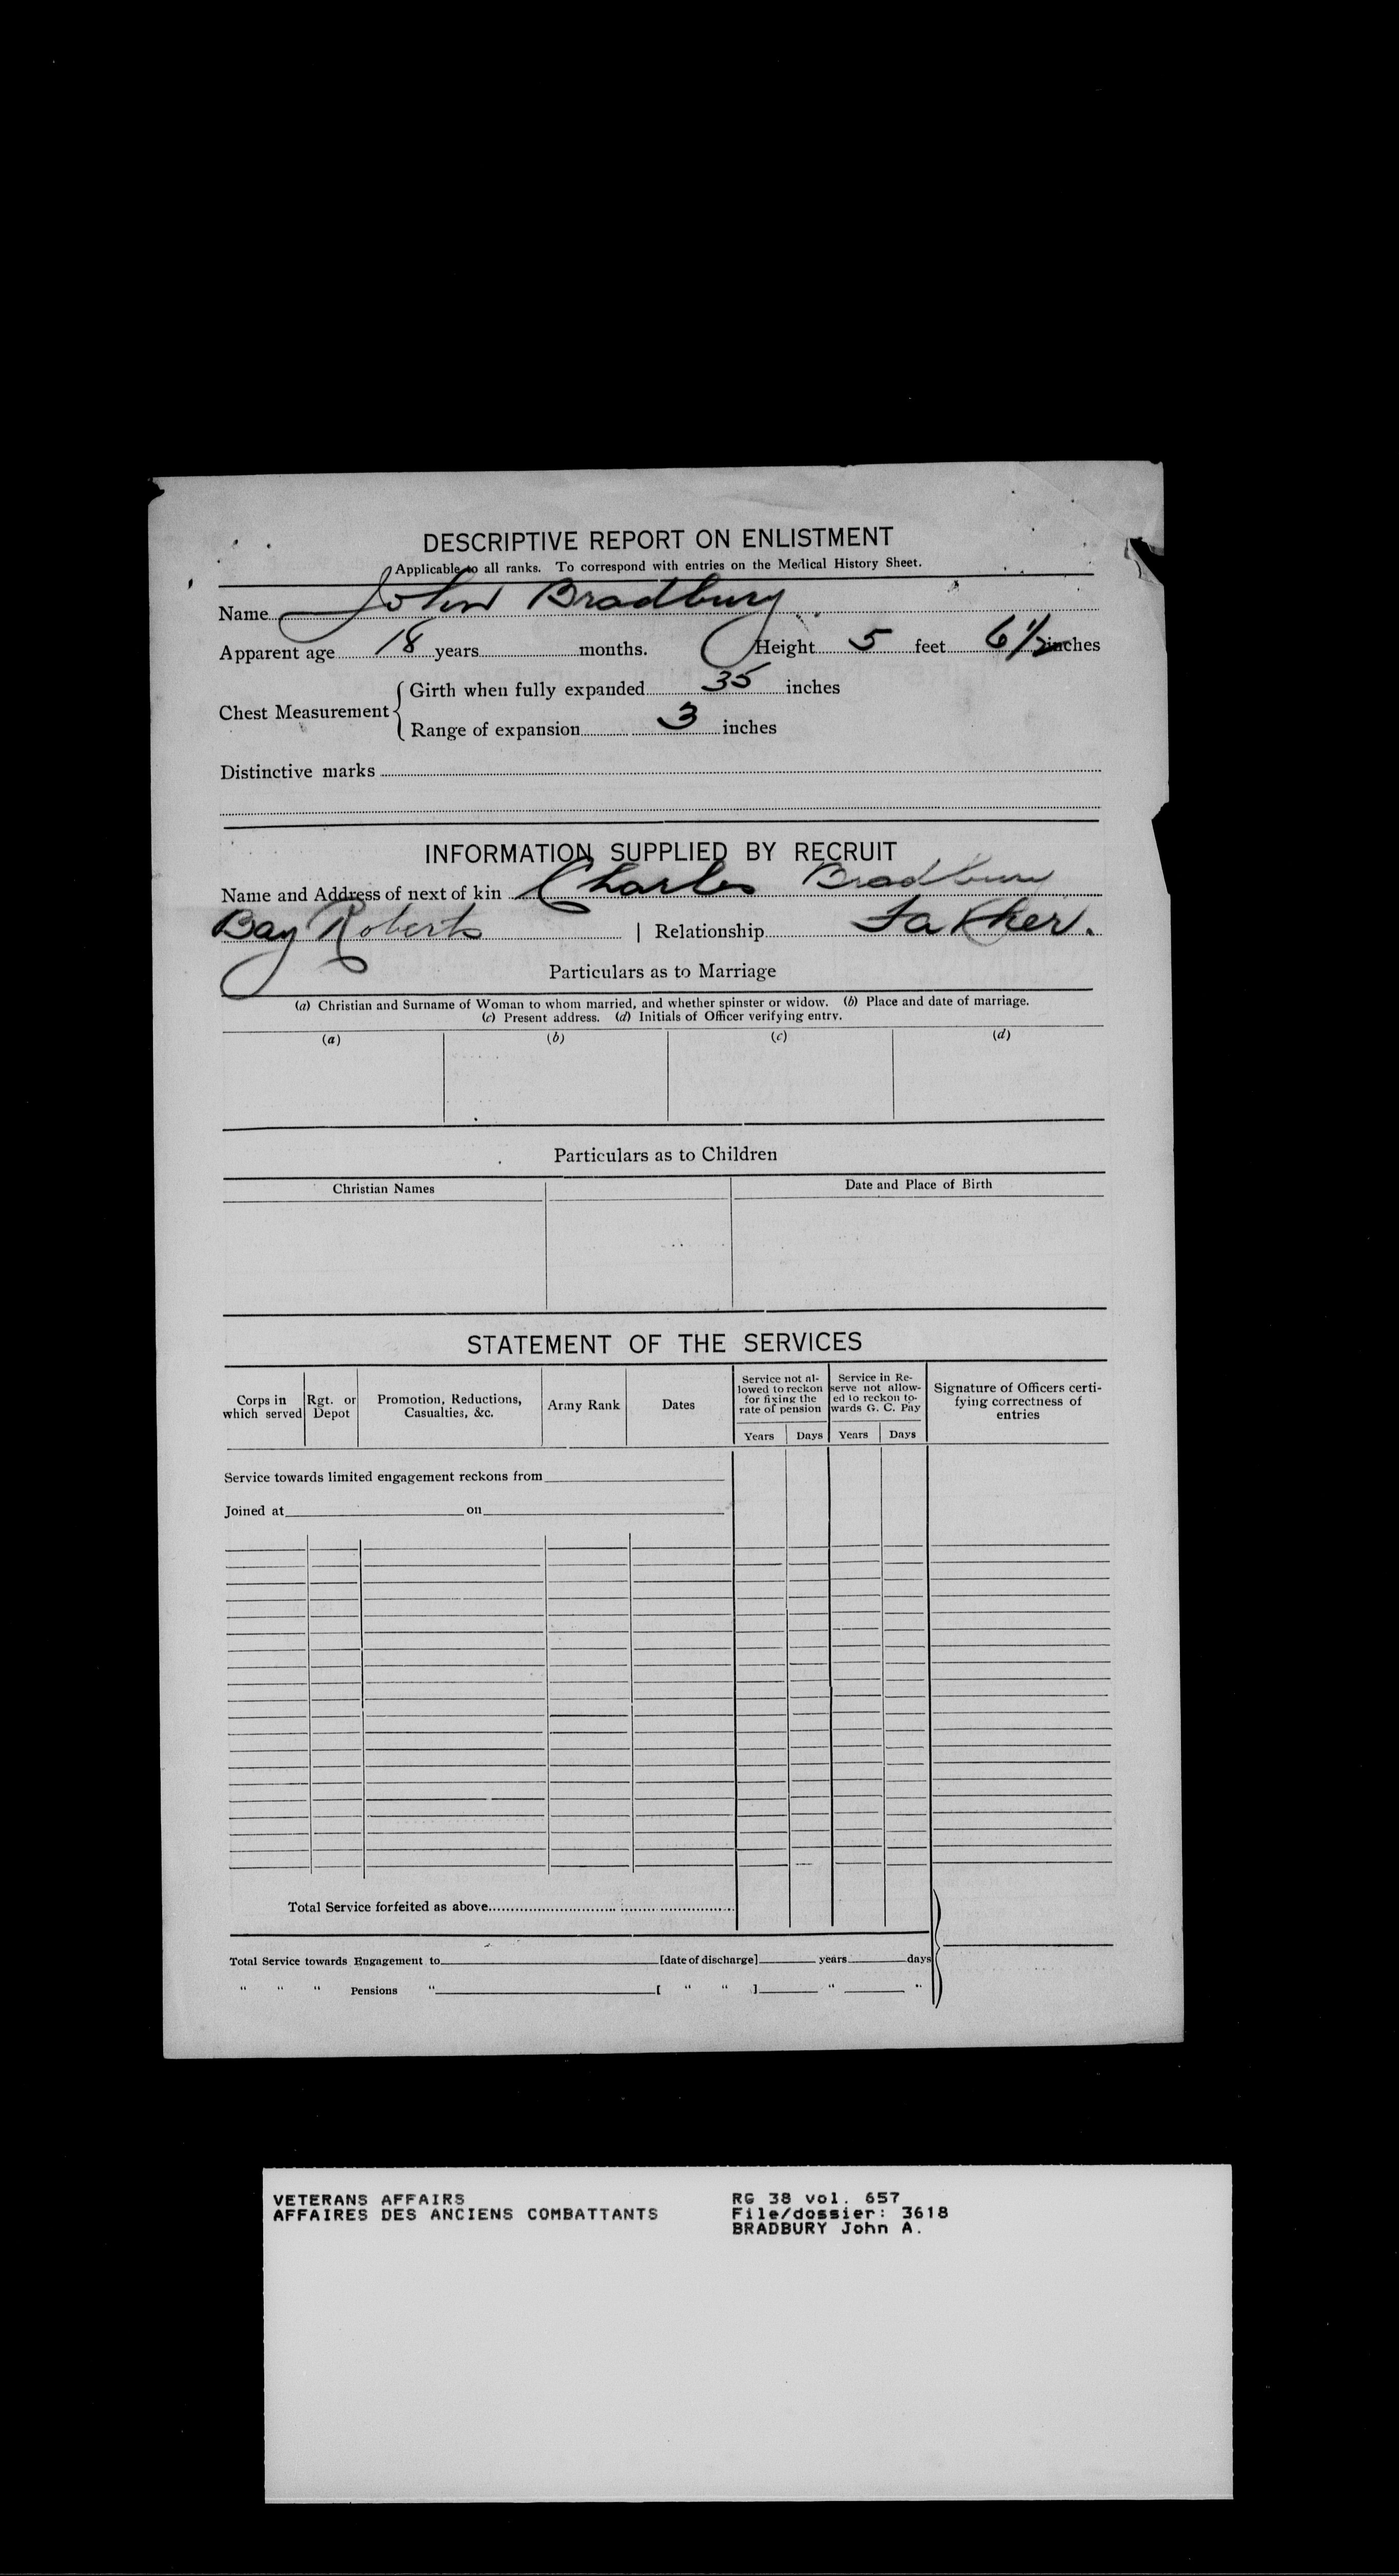 DESCRIPTIVE REPORT ON ENLISTMENT
Applicable to all ranks. To correspond with entries on the Medical History Sheet.
Name John Bradbury
Apparent age 18 years months. Height 5 feet 6 1/2 inches
Chest Measurement { Girth when fully expanded 35 inches
Range of expansion 3 inches
Distinctive marks
INFORMATION SUPPLIED BY RECRUIT
Name and Address of next of kin Charles Bradbury
Bay Roberts | Relationship Father.
Particulars as to Marriage
(a) Christian and Surname of Woman to whom married, and whether spinster or widow. (b) Place and date of marriage.
(c) Present address. (d) Initials of Officer verifying entry.
(a) (b) (c) (d)
Particulars as to Children
Christian Names Date and Place of Birth
STATEMENT OF THE SERVICES
Corps in which served Rgt. or Depot Promotion, Reductions, Casualties, &c. Army Rank Dates Service not allowed to reckon for fixing the rate of pension Service in Reserve not allowed to reckon towards G. C. Pay Signature of Officers certifying correctness of entries
Years Days Years Days
Service towards limited engagement reckons from
Joined at on
Total Service forfeited as above
Total Service towards Engagement to [date of discharge] years days
" " " Pensions " [ " " ] " "
VETERANS AFFAIRS
AFFAIRES DES ANCIENS COMBATTANTS
RG 38 vol. 657
File/dossier: 3618
BRADBURY John A.